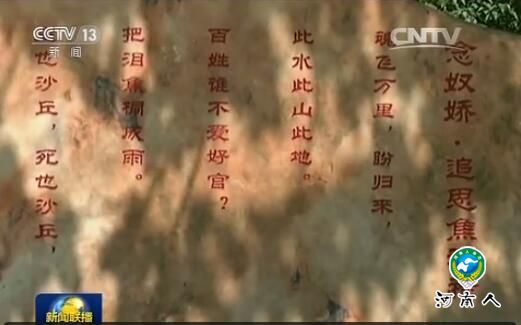 CCTV 13
新闻
CNTV
念奴娇·追思焦
魂飞万里，盼归来，
此水此山此地。
百姓谁不爱好官？
把泪焦桐成雨。
也沙丘，死也沙丘，
新闻联播
河南人